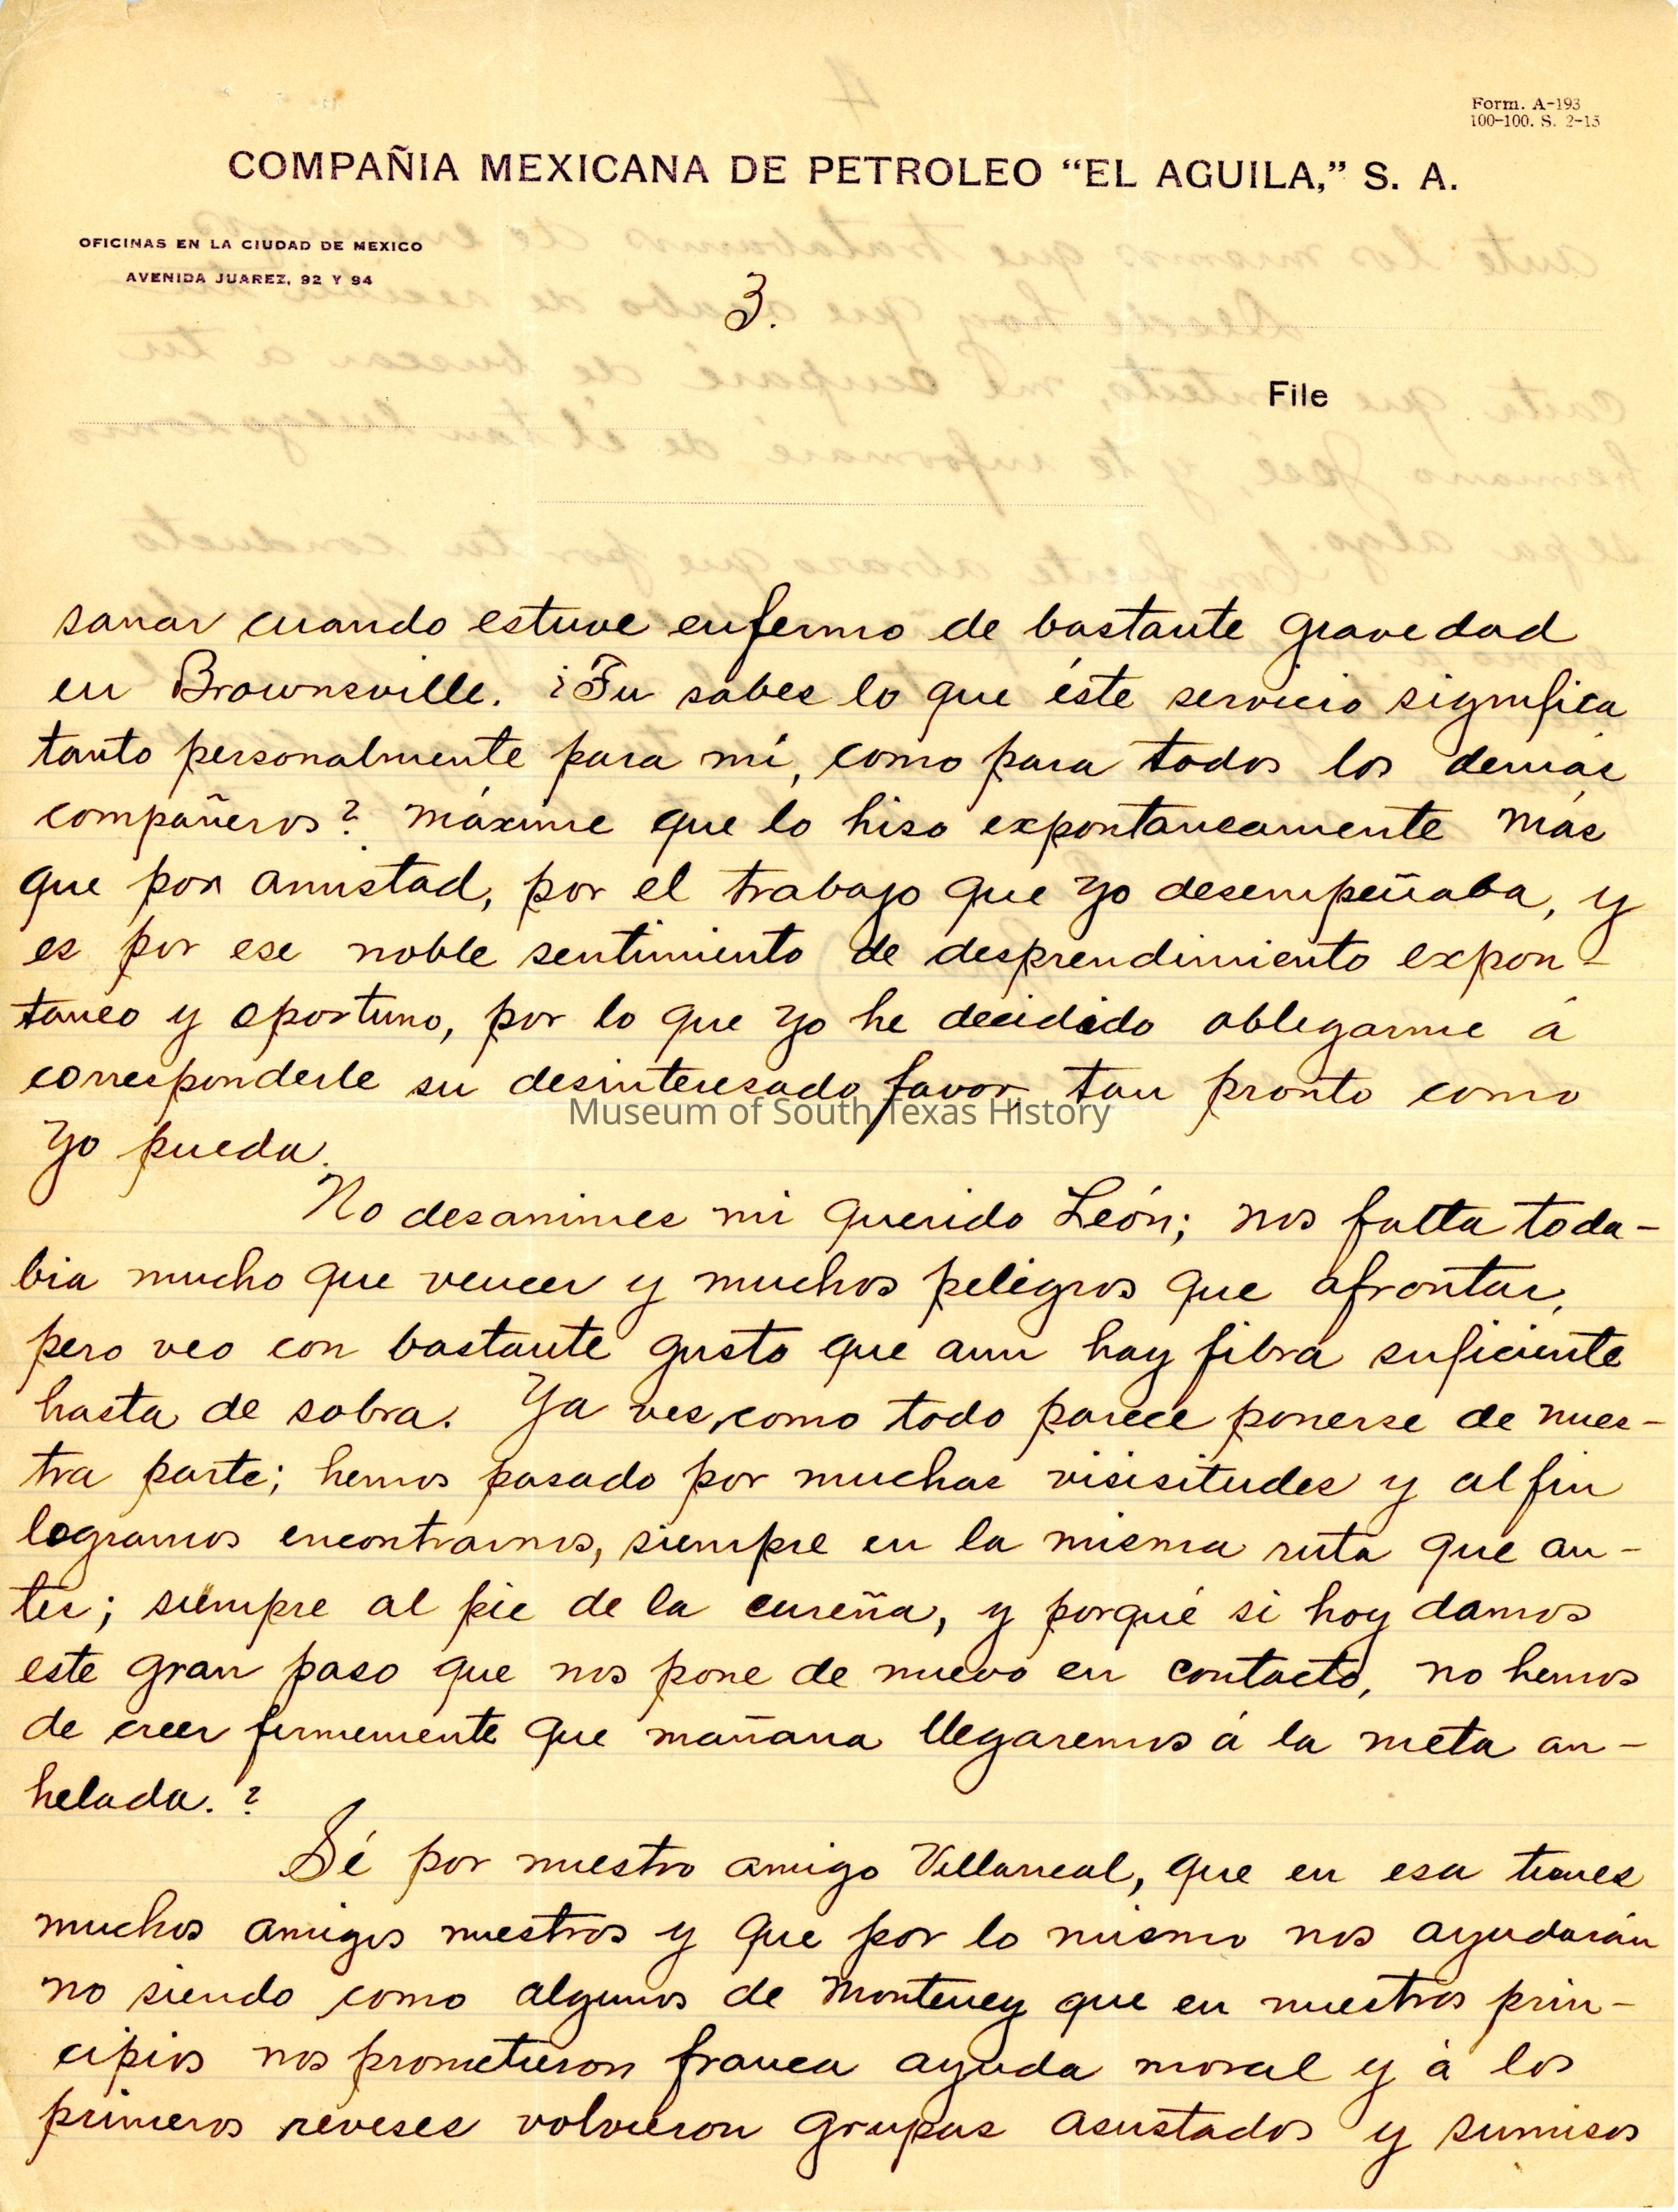 Form. A-193
100-100. S. 2-15
COMPAÑIA MEXICANA DE PETROLEO “EL AGUILA,” S. A.
OFICINAS EN LA CIUDAD DE MEXICO
AVENIDA JUAREZ, 92 Y 94
3.
File
sanar cuando estuve enfermo de bastante gravedad
en Brownsville. ¿Tu sabes lo que éste servicio significa
tanto personalmente para mi, como para todos los demás
compañeros? Máxime que lo hiso expontaneamente más
que por amistad, por el trabajo que yo desempeñaba, y
es por ese noble sentimiento de desprendimiento expon-
taneo y oportuno, por lo que yo he decidido oblegarme á
corresponderle su desinteresado favor, tan pronto como
yo pueda.
No desanimes mi querido León; nos falta toda-
bia mucho que vencer y muchos peligros que afrontar,
pero veo con bastante gusto que aun hay fibra suficiente
hasta de sobra. Ya ves, como todo parece ponerse de nues-
tra parte; hemos pasado por muchas visisitudes y al fin
logramos encontrarnos, siempre en la misma ruta que an-
tes; siempre al pie de la cureña, y porqué si hoy damos
este gran paso que nos pone de nuevo en contacto, no hemos
de creer firmemente que mañana llegaremos á la meta an-
helada. ?
Sé por nuestro amigo Villarreal, que en esa tienes
muchos amigos nuestros y que por lo mismo nos ayudarán
no siendo como algunos de Monterrey que en nuestros prin-
cipios nos prometieron franca ayuda moral y á los
primeros reveses volvieron grupas asustados y sumisos
Museum of South Texas History